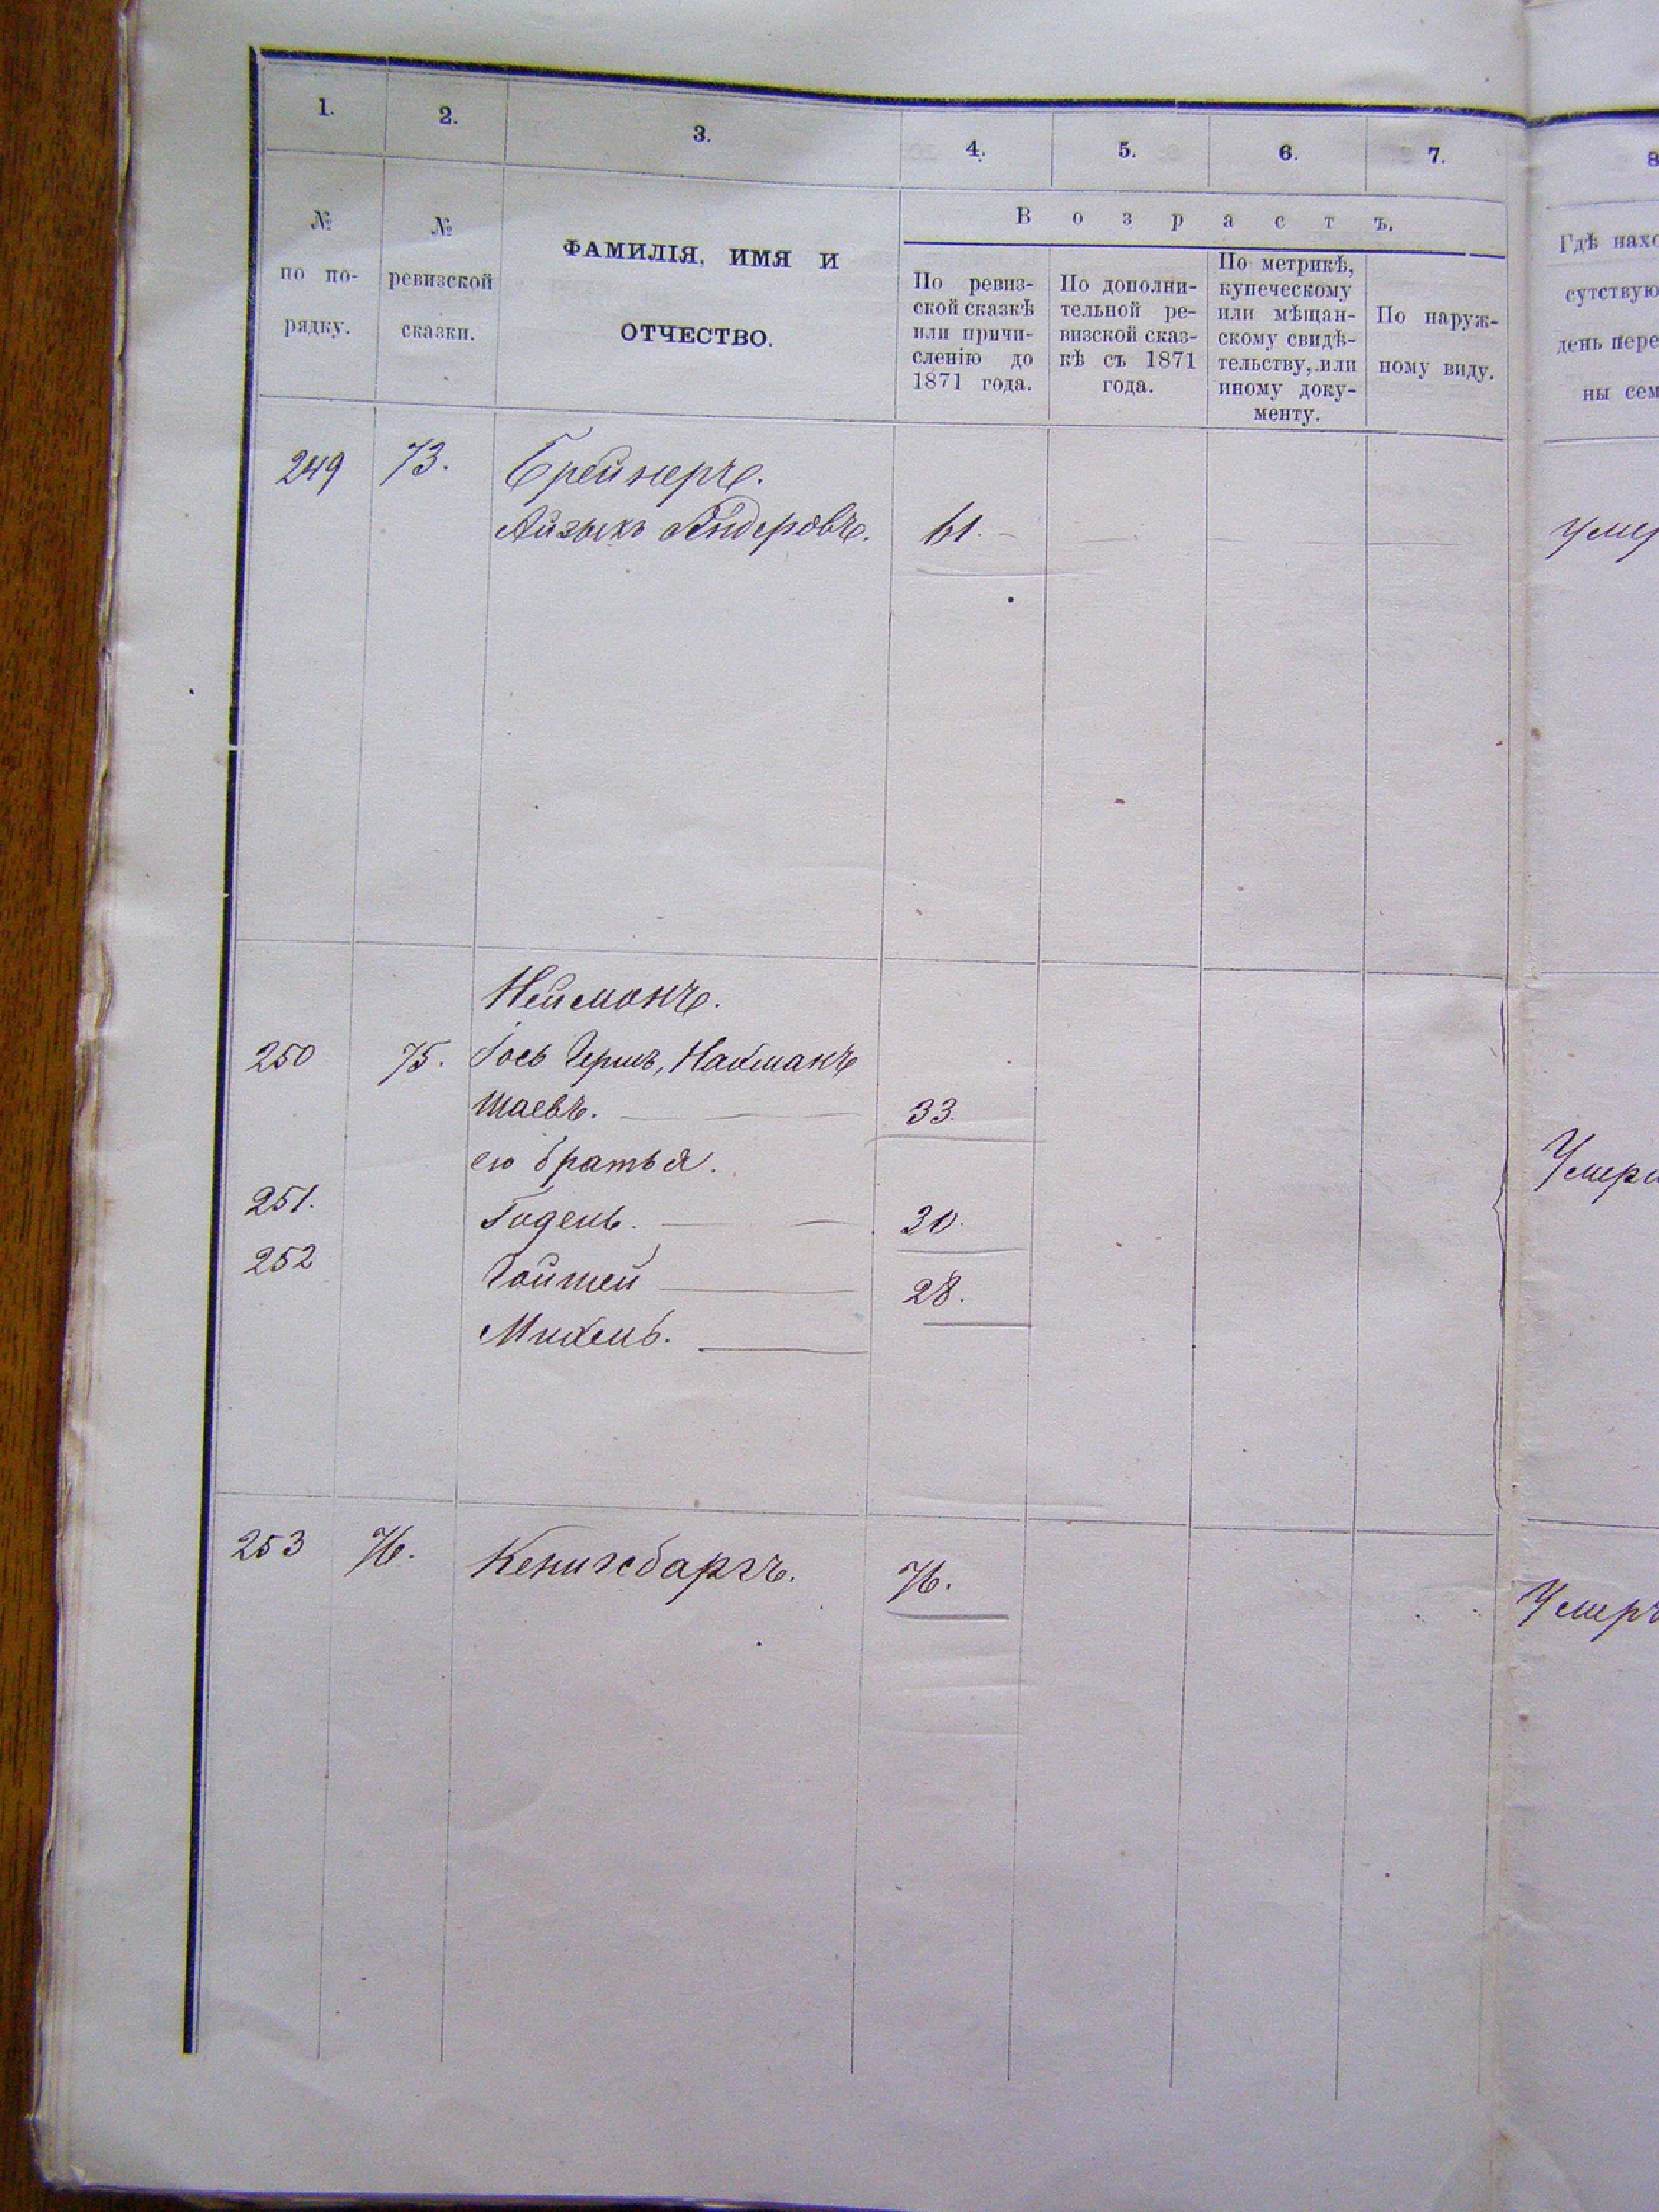 1.
2.
3.
4.
5.
6.
7.
8
№
по по-
рядку.
№
ревизской
сказки.
ФАМИЛІЯ, ИМЯ И
ОТЧЕСТВО.
Возрастъ.
По ревиз-
ской сказкѣ
или причи-
сленію до
1871 года.
По дополни-
тельной ре-
визской сказ-
кѣ съ 1871
года.
По метрикѣ,
купеческому
или мѣщан-
скому свидѣ-
тельству, или
иному доку-
менту.
По наруж-
ному виду.
Гдѣ нахо
сутствую
день пере
ны сем
249 73. Брейнеръ.
Айзыкъ 61. Умер
Нейманъ.
250 75. Гершъ, Нахманъ
Шаевъ. 33.
его братья. Умер
251. Годель. 30.
252 28.
Михель.
253 76. Кенигсбаргъ. 76. Умеръ